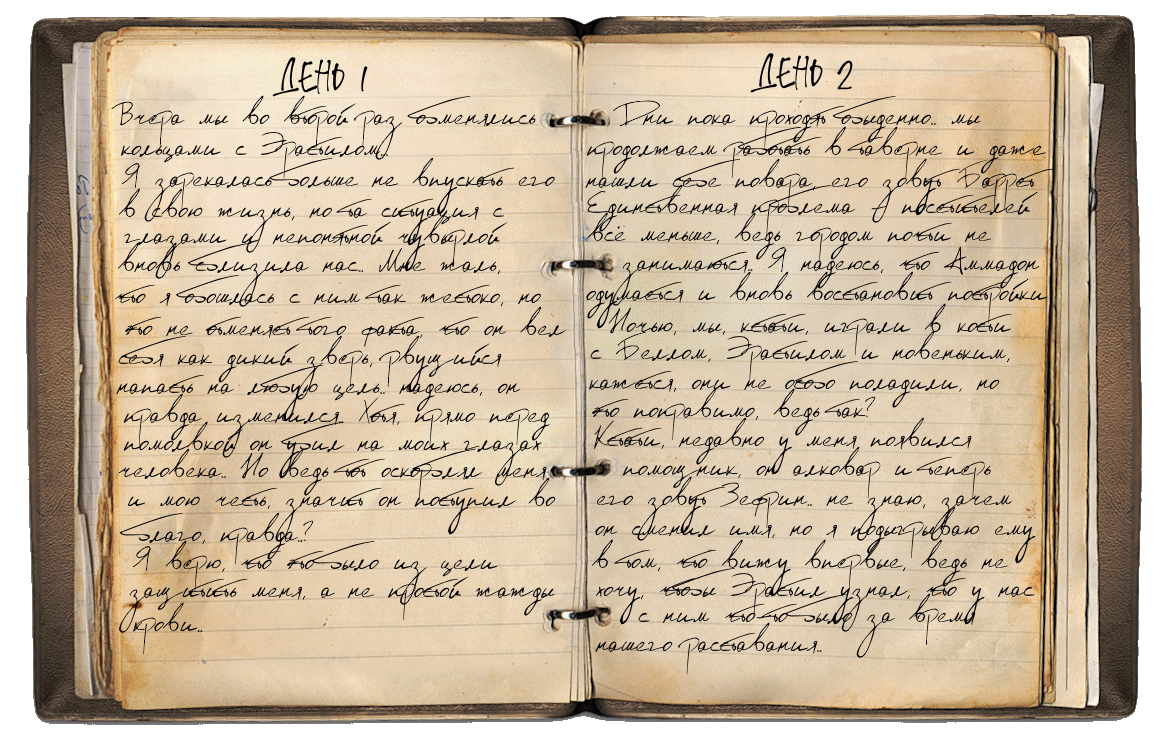 ДЕНЬ 1
Вчера мы во второй раз обменялись
кольцами с Эрастилом.
Я зарекалась больше не впускать его
в свою жизнь, но та ситуация с
глазами и непонятной чувырлой
вновь сблизила нас.. Мне жаль,
что я обошлась с ним так жестоко, но
это не отменяет того факта, что он вел
себя как дикий зверь, рвущийся
напасть на любую цель.. надеюсь, он
правда изменился. Хотя, прямо перед
помолвкой он убил на моих глазах
человека.. Но ведь тот оскорблял меня
и мою честь, значит он поступил во
благо, правда..?
Я верю, что это было из цели
защитить меня, а не простой жажды
крови..
ДЕНЬ 2
Дни пока проходят обыденно.. мы
продолжаем работать в таверне и даже
нашли себе повара, его зовут Баррет
Единственная проблема - посетителей
всё меньше, ведь городом почти не
занимаются.. Я надеюсь, что Аммадон
одумается и вновь восстановит постройки
Ночью, мы, кстати, играли в кости
с Беллом, Эрастилом и новеньким,
кажется, они не особо поладили, но
это поправимо, ведь так?
Кстати, недавно у меня появился
помощник, он алковар и теперь
его зовут Зефрин.. не знаю, зачем
он сменил имя, но я подыгрываю ему
в том, что вижу впервые, ведь не
хочу, чтобы Эрастил узнал, что у нас
с ним что-то было за время
нашего расставания..